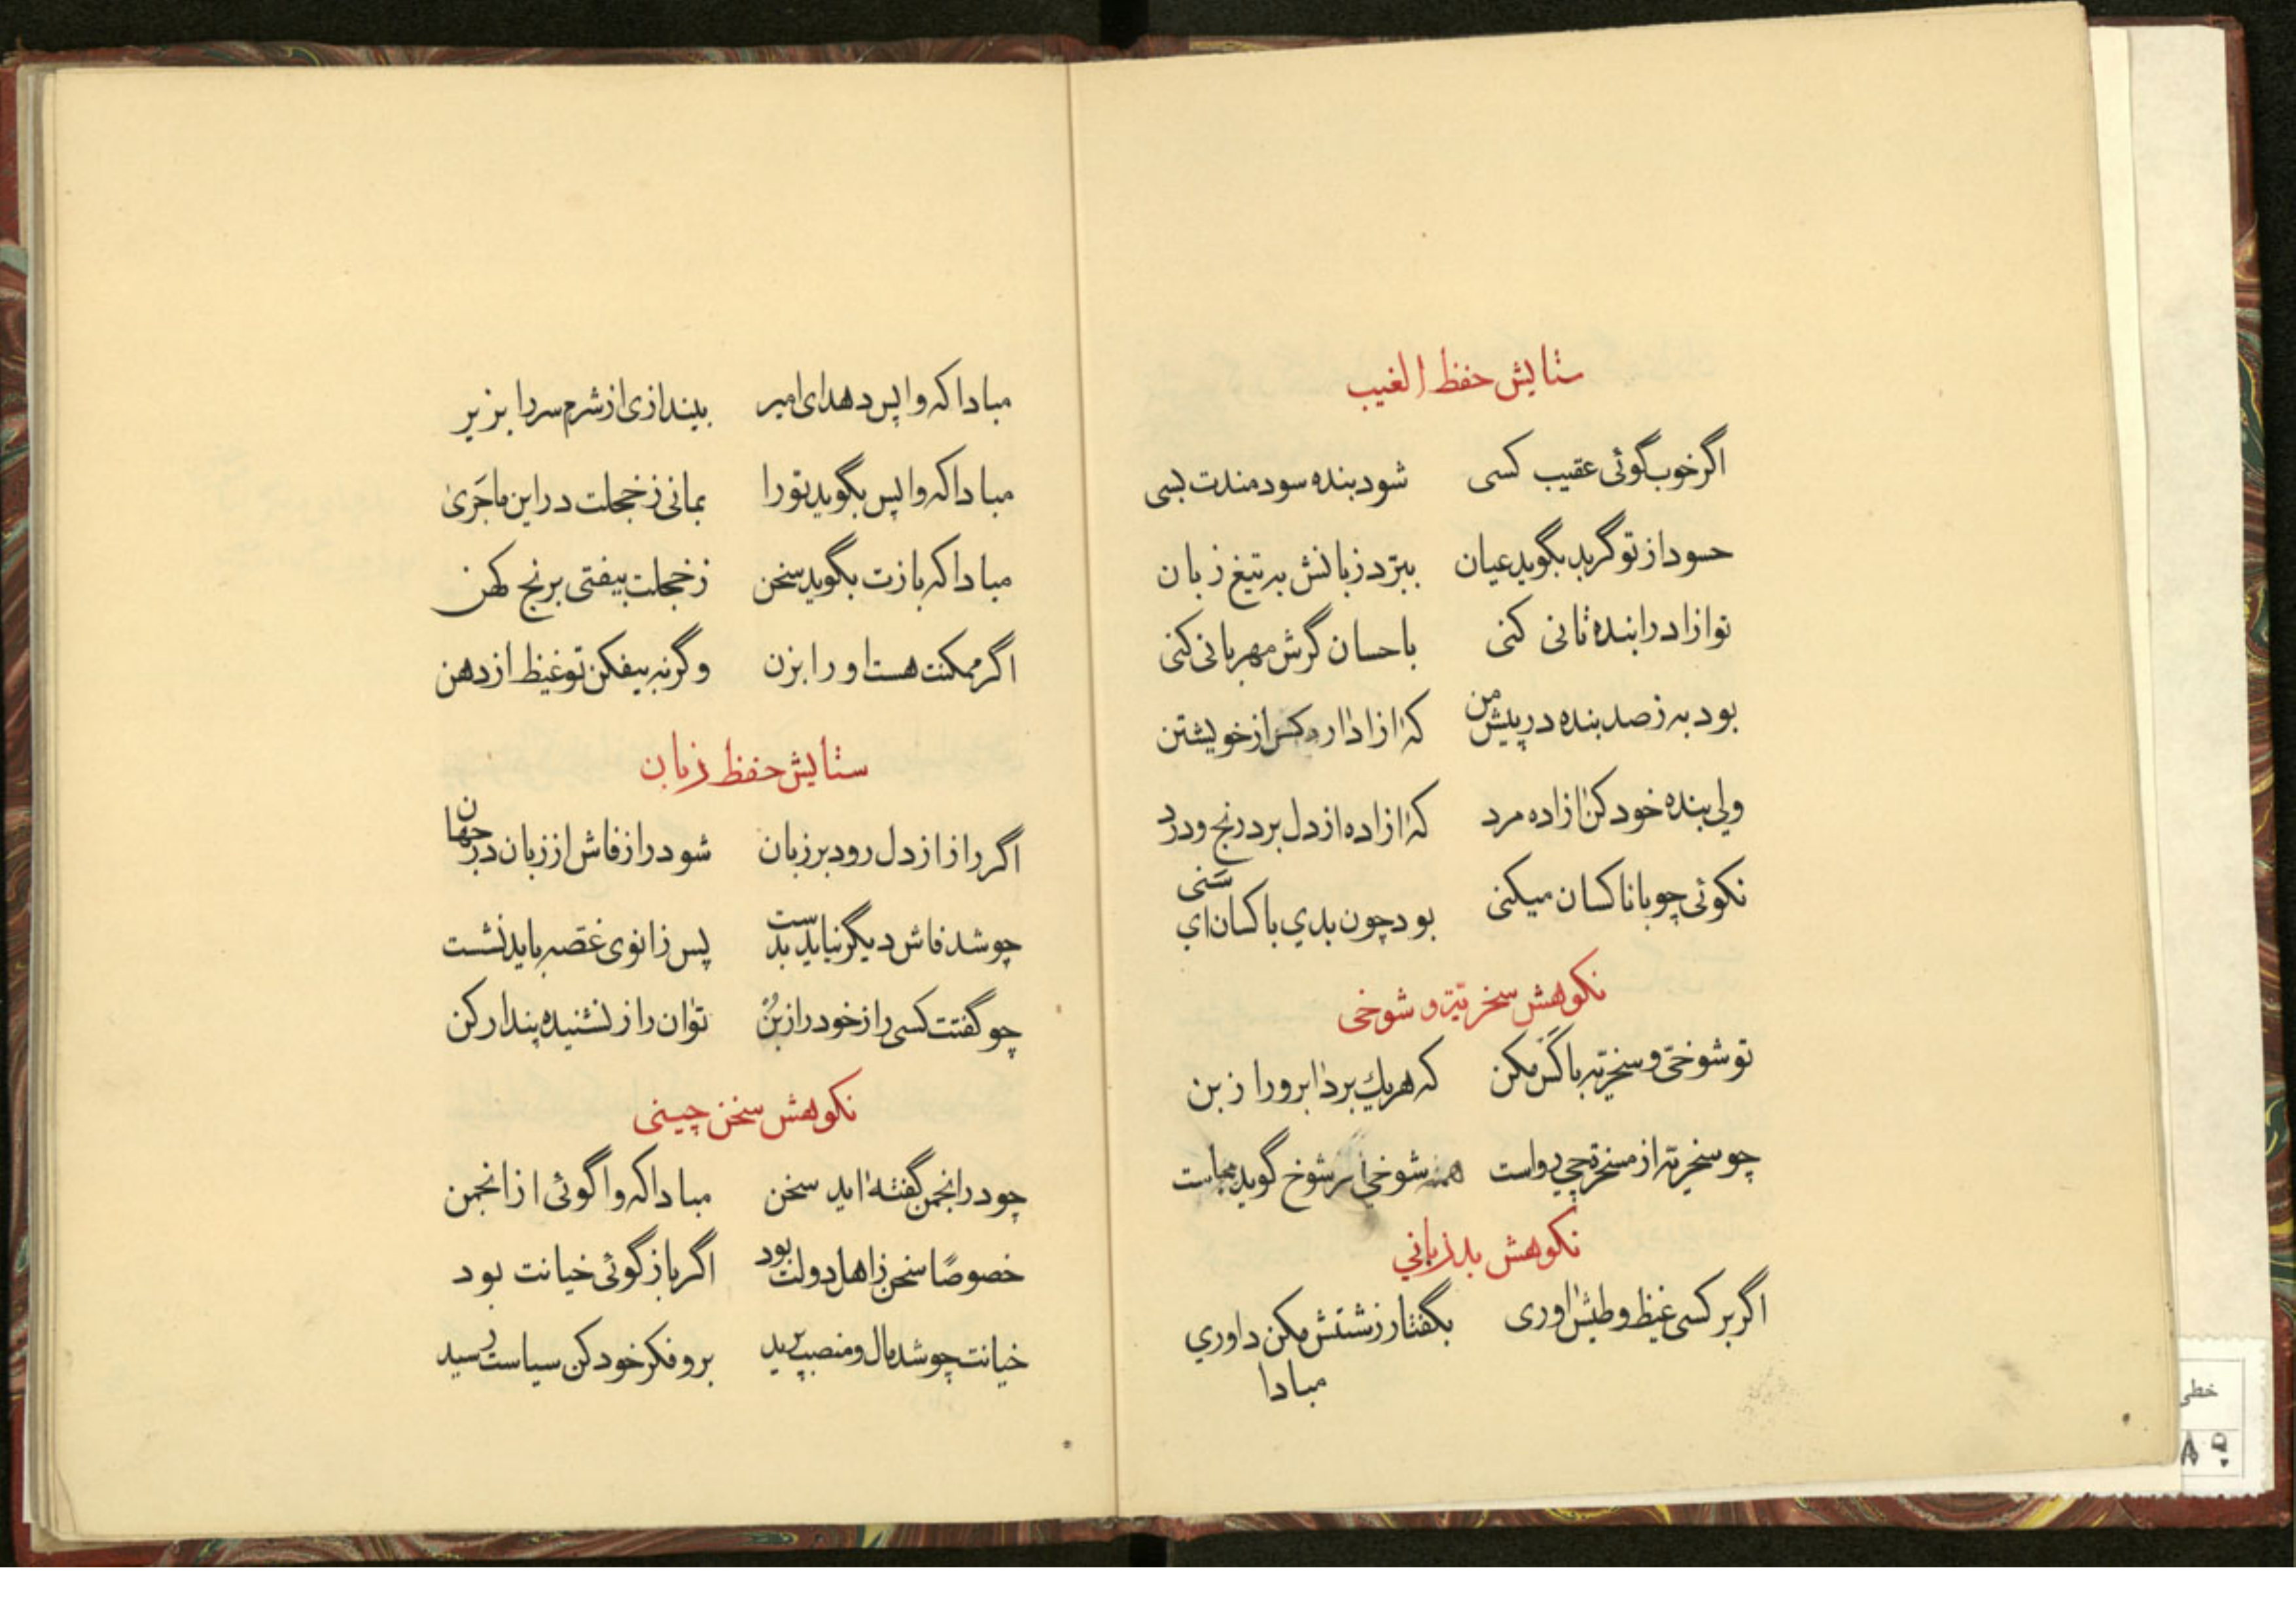 ستایش حفظ الغیب
اگر خوب گوئی عقیب کسی شود بنده سودمندت بسی
حسود از تو گر بد بگوید عیان ببرّد زبانش به تیغ زبان
تو ازاد را بنده ثانی کنی باحسان گرش مهربانی کنی
بود به ز صد بنده در پیش من که ازاداره کس از خویشتن
ولی بنده خود کن ازاده مرد که ازاده از دل برد رنج و درد
نکوئی چو با ناکسان میکنی بود چون بدي با کسان اي سَنی
نکوهش سخریّة و شوخی
تو شوخیّ و سخریّه با کَس مکن که هریك برد ابرو را ز بن
چو سخریّه از مسخرّه‌چي رواست همه شوخي ار شوخ گوید بجاست
نکوهش بد زباني
اگر بر کسی غیظ و طیش اوری بگفتار زشتش مکن داوري
مبادا
مبادا که واپس دهد ای امیر بیندازی از شرم سر را بزیر
مبادا که واپس بگوید تو را بمانی ز خجلت در این ماجَریٰ
مبادا که بازت بگوید سخن ز خجلت بیفتی برنج کهن
اگر ممکنت هست او را بزن و گرنه بیفکن تو غیظ از دهن
ستایش حفظ زبان
اگر راز از دل رود بر زبان شود راز فاش از زبان در جهان
چو شد فاش دیگر نیاید بدست پس زانوی غصّه باید نشست
چو گفتت کسی راز خود را ز بُن تو ان راز نشنیده پندار کن
نکوهش سخن چینی
چو در انجمن گفته اید سخن مبادا که واگوئی از انجمن
خصوصًا سخن ز اهل دولت بود اگر بازگوئی خیانت بود
خیانت چو شد مال و منصب پرید برو فکر خود کن سیاست رسید
خطی